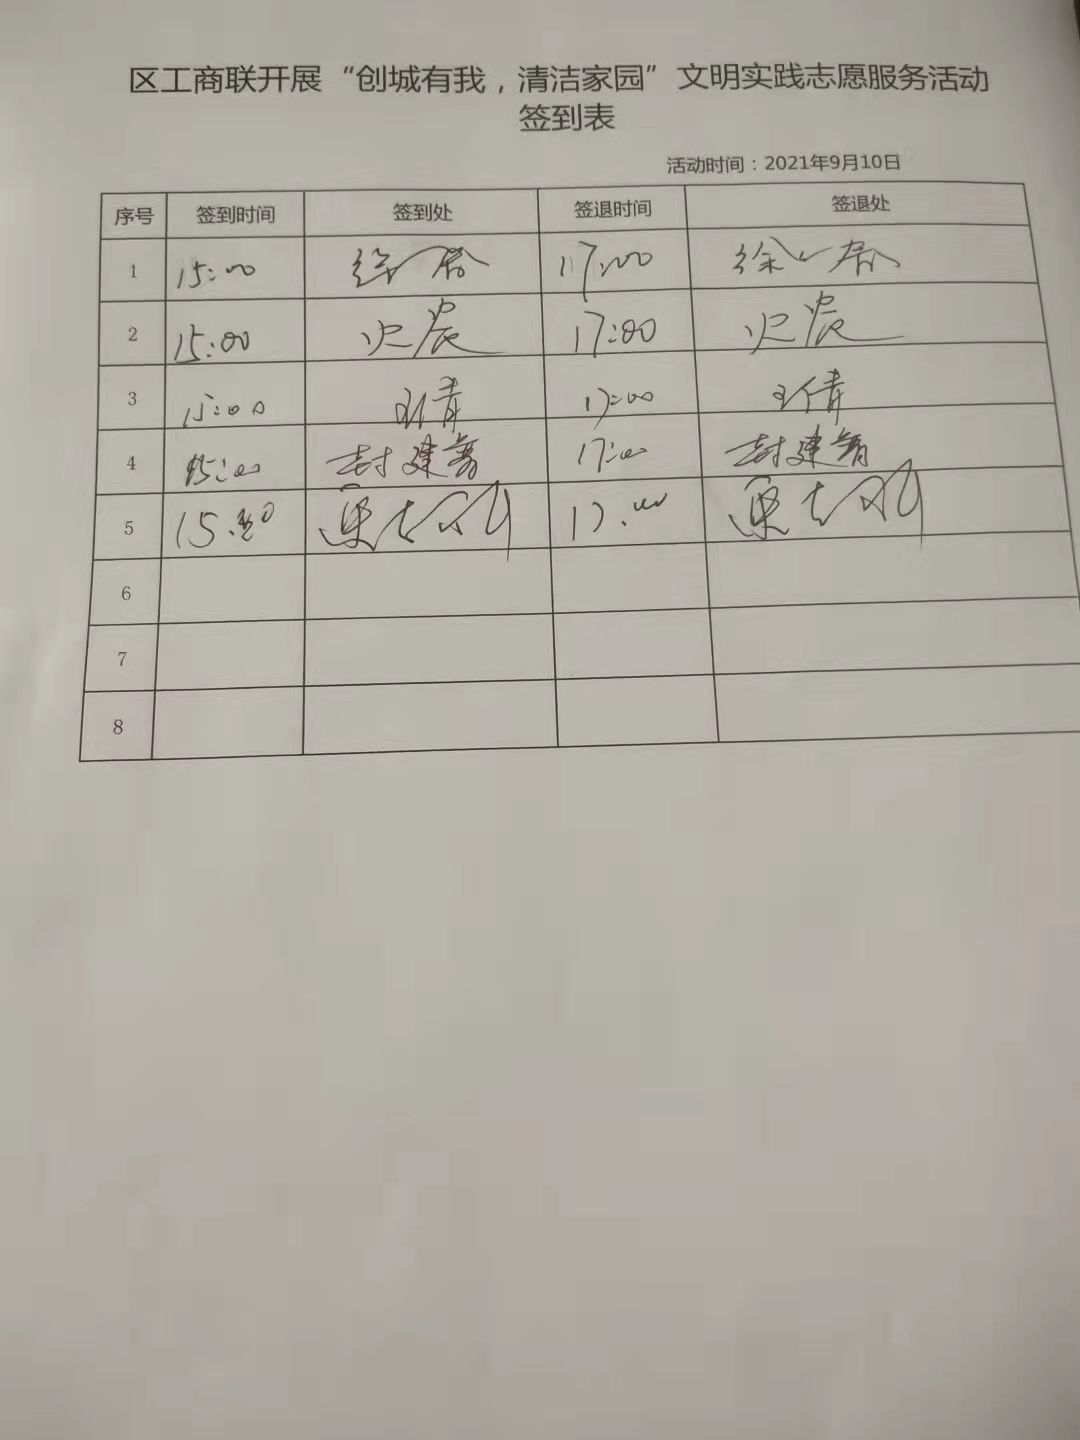 区工商联开展“创城有我，清洁家园”文明实践志愿服务活动
签到表
活动时间：2021年9月10日
序号 签到时间 签到处 签退时间 签退处
1 15:00 徐一 17:00 徐一
2 15:00 史宸 17:00 史宸
3 15:00 王倩 17:00 王倩
4 15:00 封建 17:00 封建
5 15:00 17:00
6
7
8